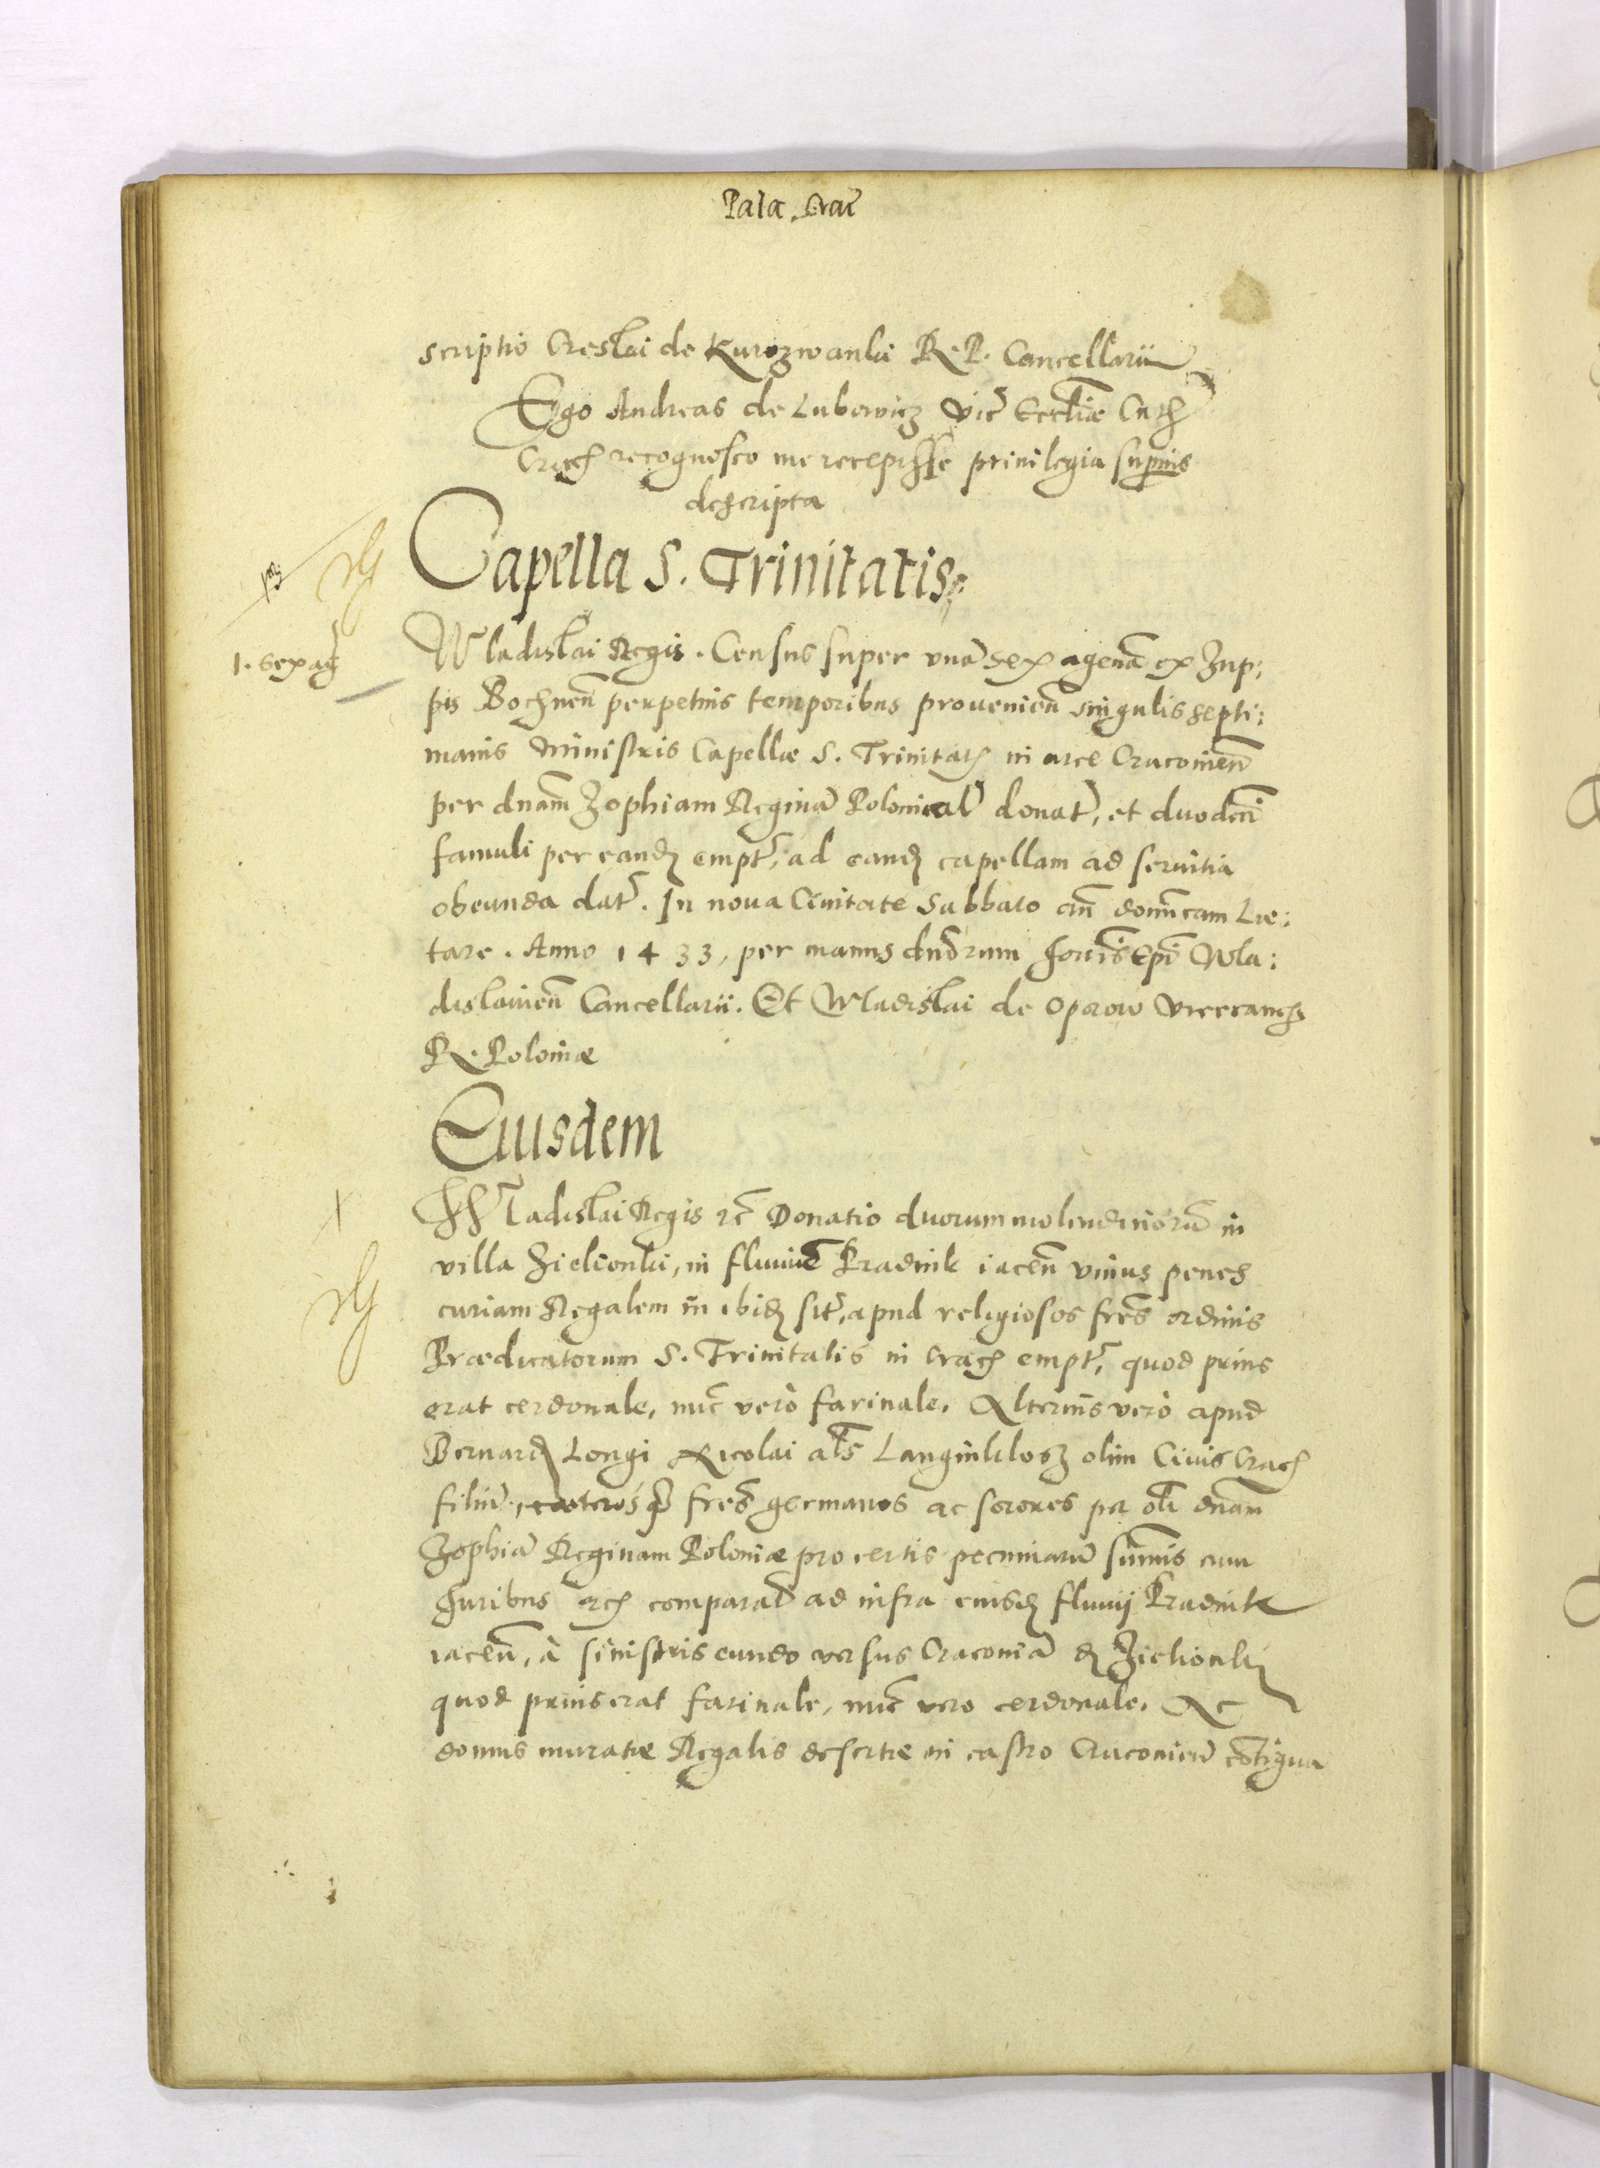 Pala. Crac̃
scriptio Creslai de Kurozwanki R. P. Cancellarii
Ego Andreas de Lubowicz Vic̃ Eccl̃iæ Cath
Crach recognosco me recepisse priuilegia supius
descripta
Capella S. Trinitatis.
1. Sexag̃
Wladislai Regis. Census super vnã sexagenã ex Zup:
pis Bochneñ perpetuis temporibus prouenieñ singulis septi:
manis Ministris Capellæ S. Trinitatis in arce Cracouieñ
per dnam̃ Zophiam Reginã Poloniæ donat̃, et duodeci
famuli per eandẽ empt̃, ad eandẽ capellam ad seruitia
obeunda dat̃. In noua Ciuitate Sabbato añ domi͠cam Læ:
tare. Anno 1433, per manus dn̄orum Joan̄is Ep̃i Wla:
dislauieñ Cancellarii. Et Wladislai de Oporow vicecanc
R. Poloniæ
Eiusdem
Wladislai Regis rc̃ Donatio duorum molendinorũ in
villa Zielionki, in fluuiũ Pradnik iaceñ vnius penes
curiam Regalem iñ ibidẽ sit̃, apud religiosos fres̃ ordinis
Prædicatorum S. Trinitatis in Crach empt̃, quod prius
erat cerdonale, nuc̃ verò farinale. Alterius verò apud
Bernardũ Longi Nicolai al̃s Langinklosz olim Ciuis Crach
filiũ, cæterosq̃ fres̃ germanos ac sorores per oli dnam̃
Zophiã Reginam Poloniæ pro certis pecuniarũ sum̃is cum
Juribus rc̃ comparat̃ ad infra eiusdẽ fluuij Pradnik
iaceñ, à sinistris eundo versus Cracouiã dẽ Zielionki
quod prius erat farinale, nuc̃ vero cerdonale. Ac
domus muratæ Regalis desertæ in castro Cracouieñ cõtigua